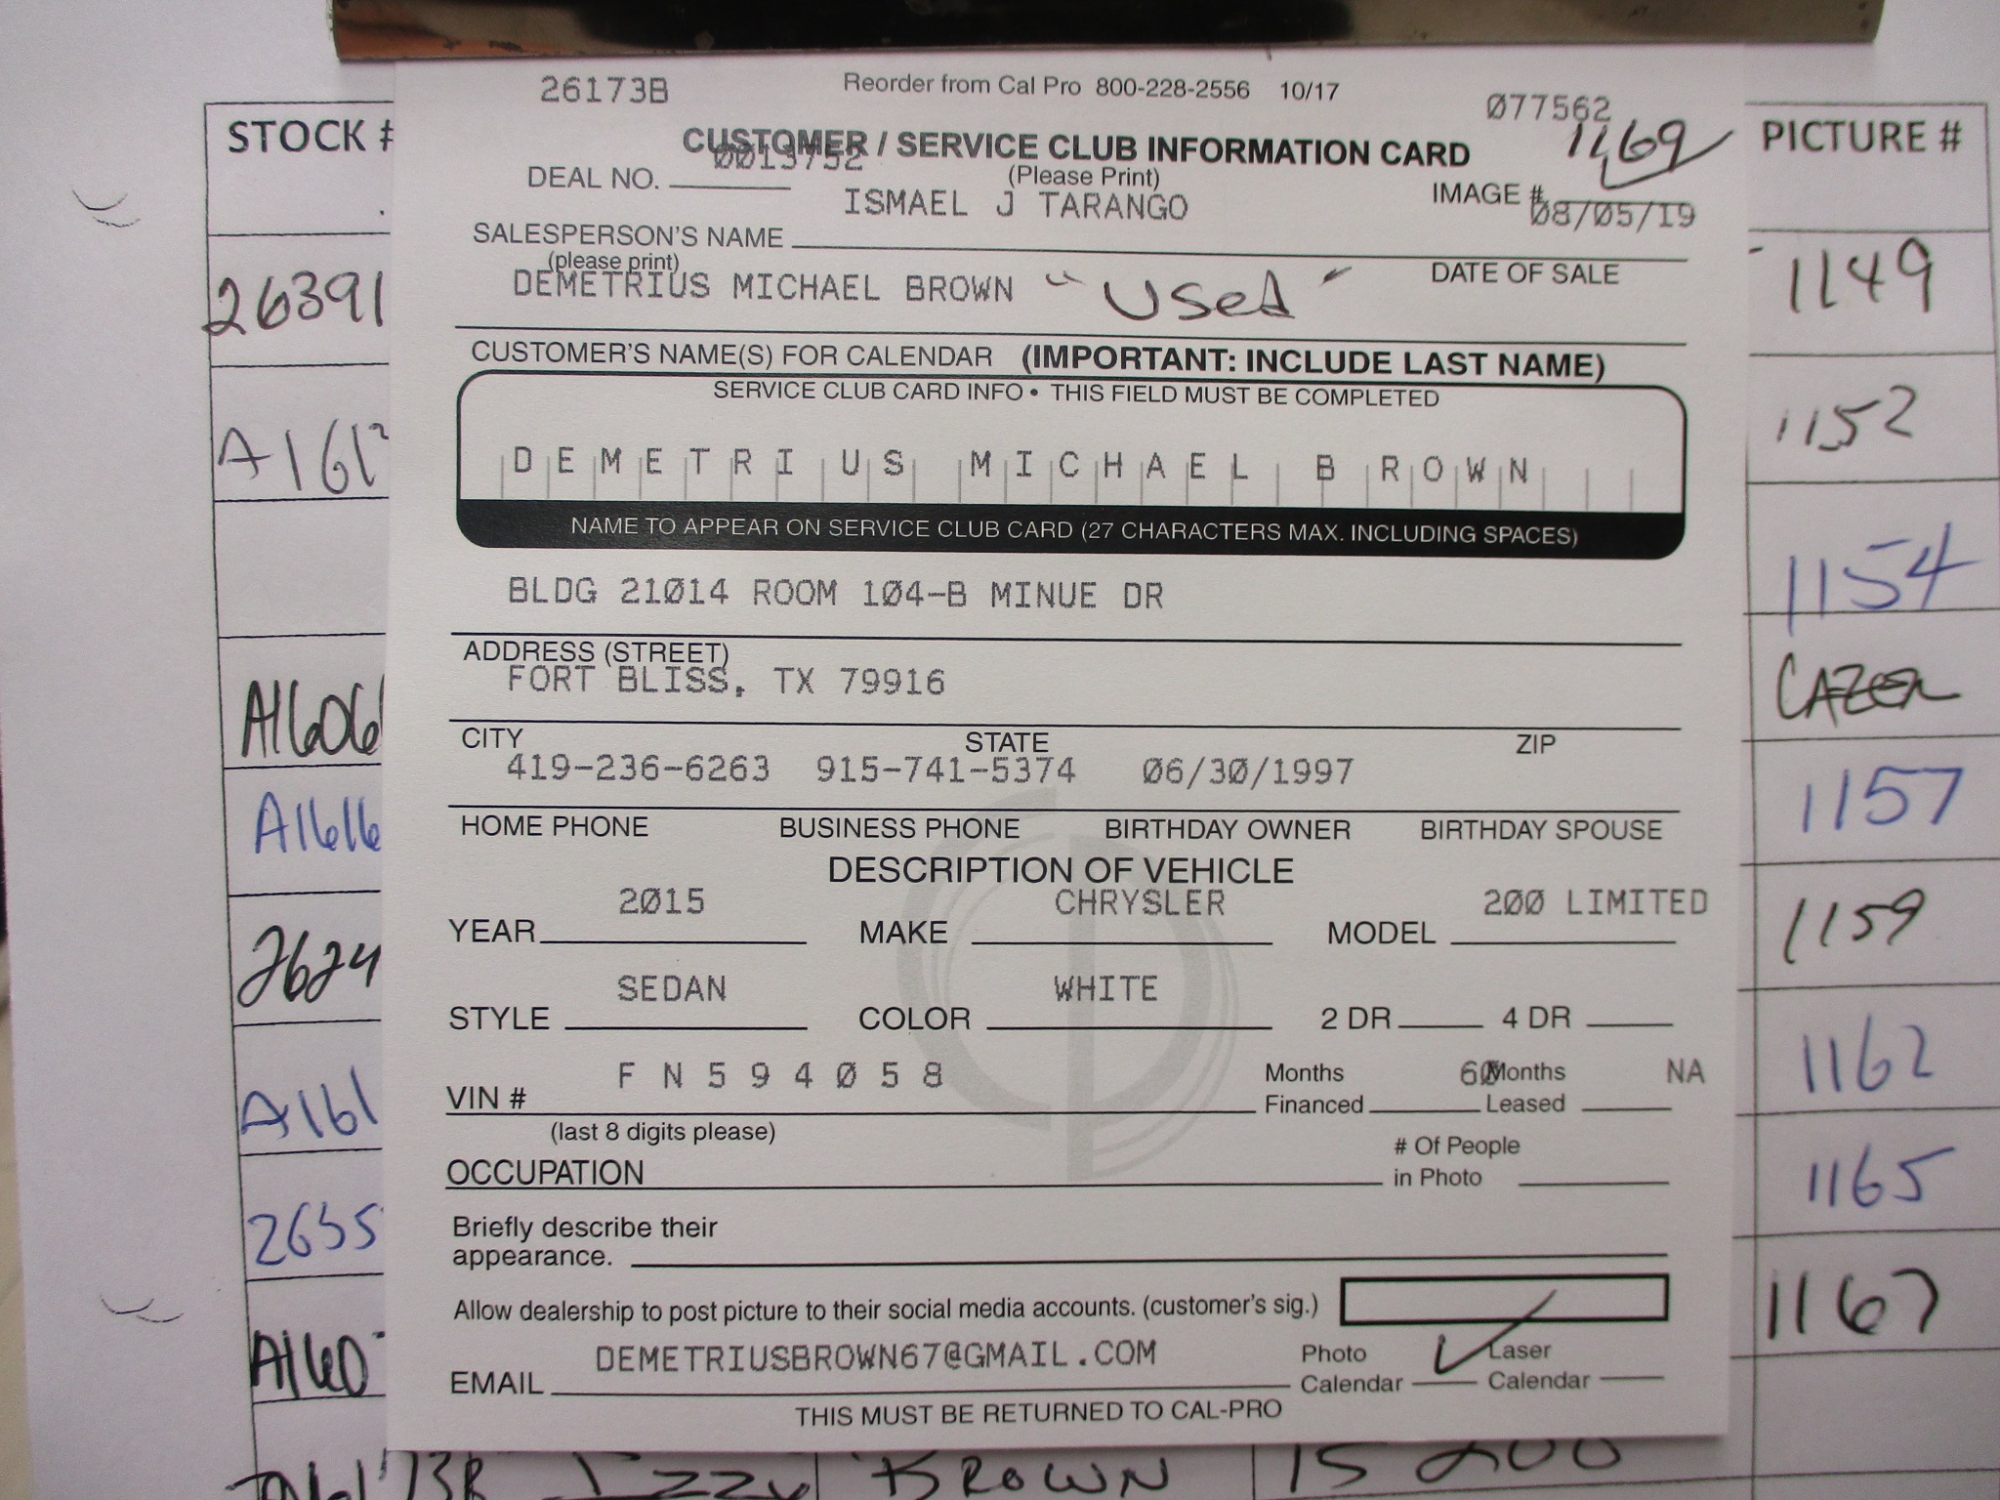 26173B Reorder from Cal Pro 800-228-2556 10/17 077562
STOCK # CUSTOMER / SERVICE CLUB INFORMATION CARD 1169 PICTURE #
DEAL NO. 0013752 (Please Print) IMAGE #
ISMAEL J TARANGO 08/05/19
SALESPERSON'S NAME
(please print) DATE OF SALE
26391 DEMETRIUS MICHAEL BROWN "Used" 1149
CUSTOMER'S NAME(S) FOR CALENDAR (IMPORTANT: INCLUDE LAST NAME)
SERVICE CLUB CARD INFO • THIS FIELD MUST BE COMPLETED
1152
A161 DEMETRIUS MICHAEL BROWN
NAME TO APPEAR ON SERVICE CLUB CARD (27 CHARACTERS MAX. INCLUDING SPACES)
BLDG 21014 ROOM 104-B MINUE DR 1154
ADDRESS (STREET)
FORT BLISS, TX 79916
A1606 CAZER
CITY STATE ZIP
419-236-6263 915-741-5374 06/30/1997
A1616 HOME PHONE BUSINESS PHONE BIRTHDAY OWNER BIRTHDAY SPOUSE 1157
DESCRIPTION OF VEHICLE
2015 CHRYSLER 200 LIMITED
YEAR MAKE MODEL 1159
2624 SEDAN WHITE
STYLE COLOR 2 DR 4 DR
FN594058 Months 60 Months NA 1162
A161 VIN # Financed Leased
(last 8 digits please) # Of People
OCCUPATION in Photo 1165
2635 Briefly describe their
appearance.
Allow dealership to post picture to their social media accounts. (customer's sig.) 1167
A160 DEMETRIUSBROWN67@GMAIL.COM Photo Laser
EMAIL Calendar Calendar
THIS MUST BE RETURNED TO CAL-PRO
Izzy BROWN 15 200